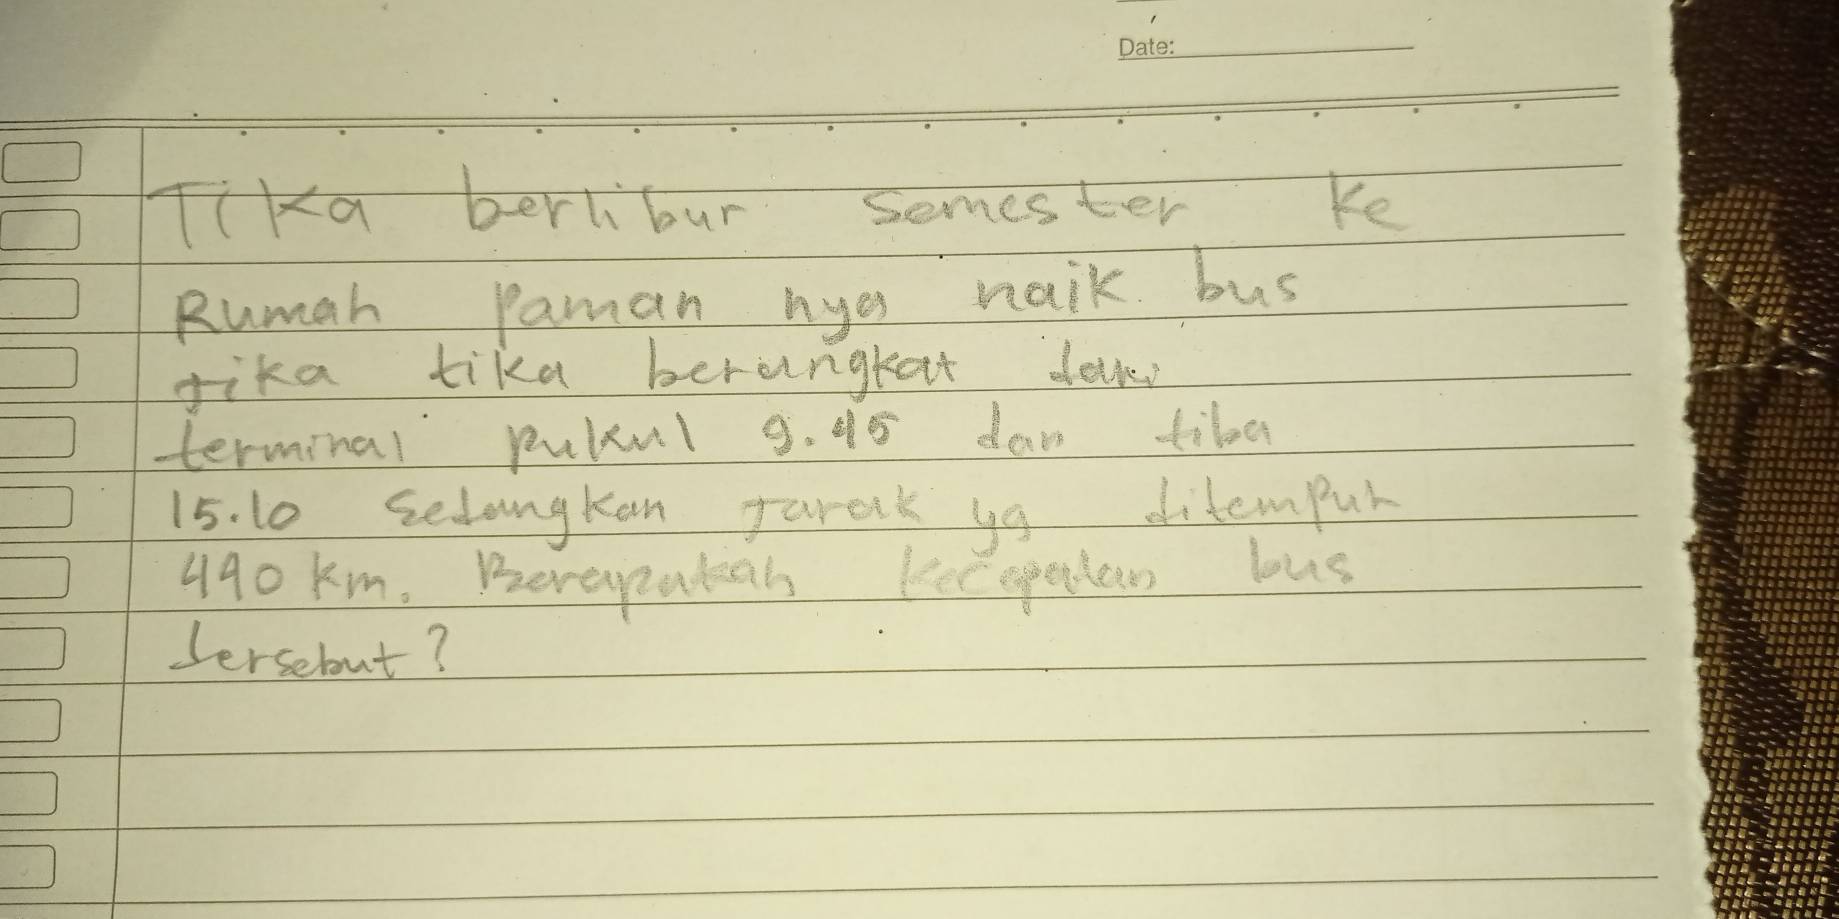 Date:
Tika berlibur semester ke
Rumah Paman nya naik bus
Jika tika berangkat dari
terminal pukul 9.45 dan tiba
15.10 sedangkan Jarak yg ditempuh
490 km. Berapakah kecepatan bus
tersebut?